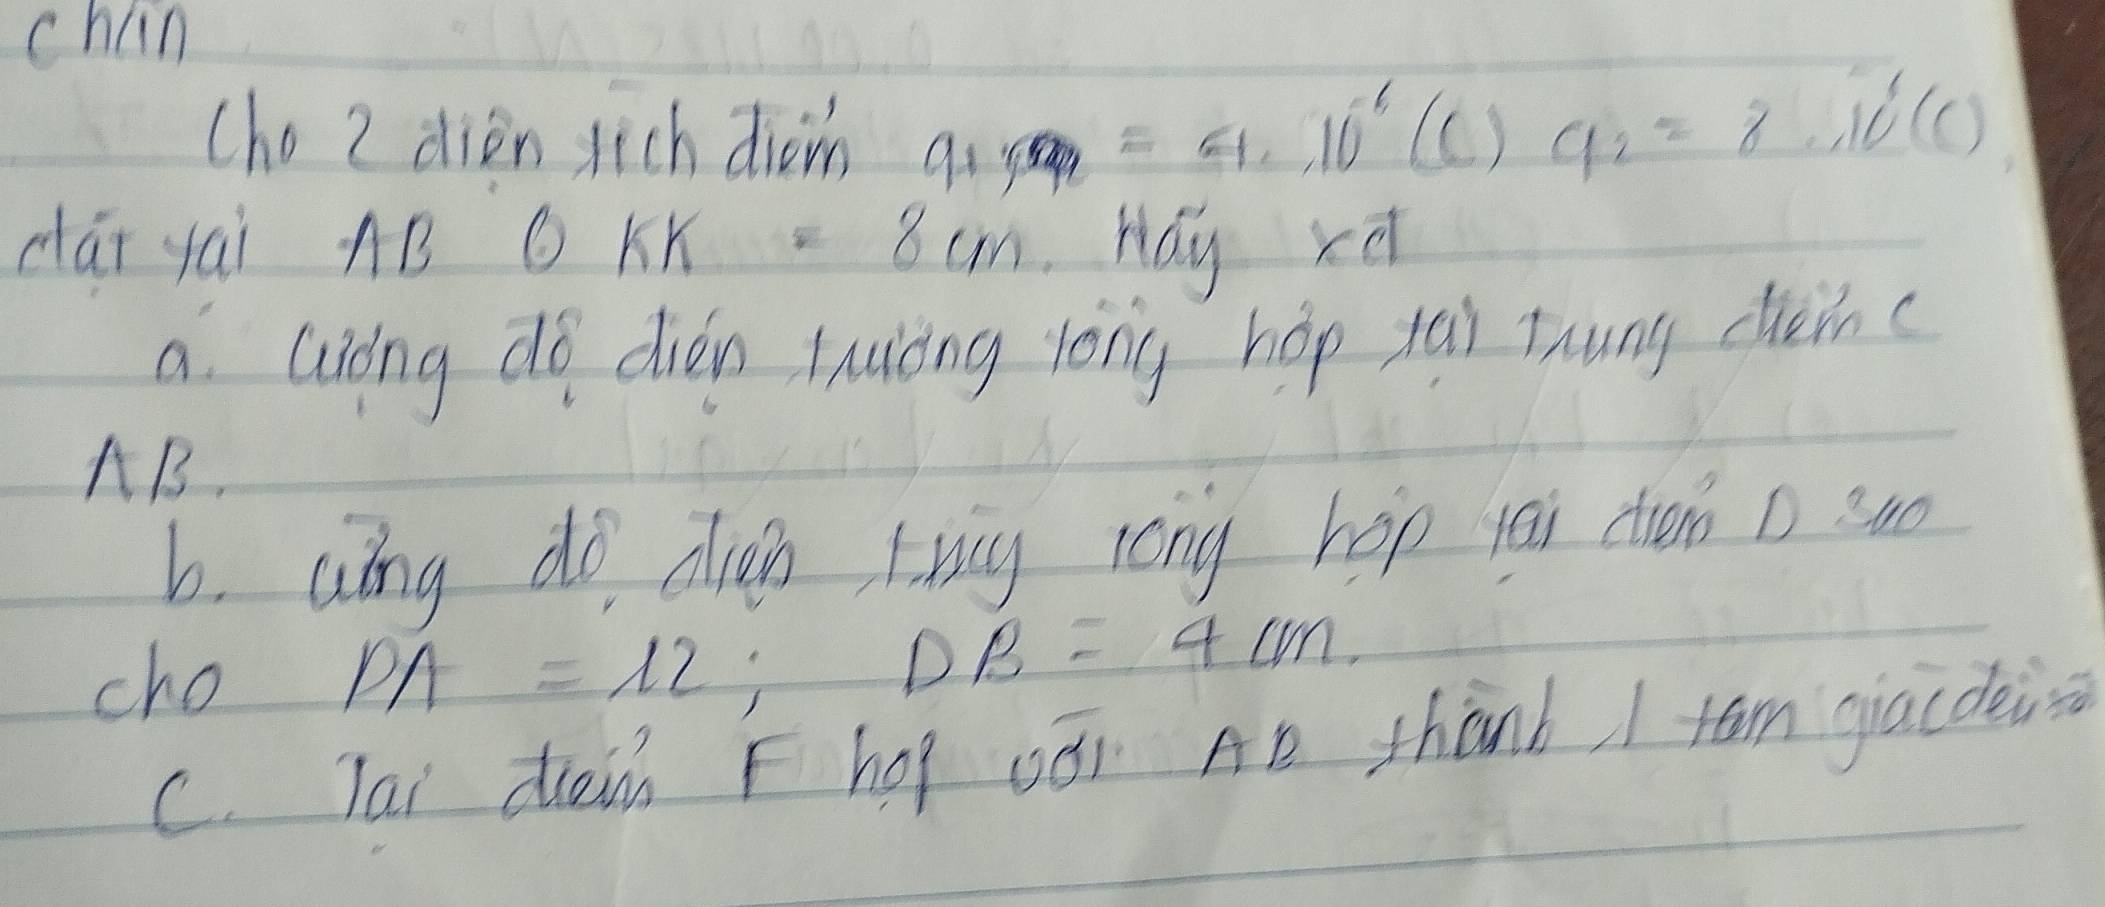 chân
Cho 2 điện tích điểm q₁ = 4.10⁻⁶ (C) q₂ = 8.10⁻⁶ (C)
đặt tại AB ở KK = 8 cm. Hãy xđ
a. Cường độ điện trường tổng hợp tại trung điểm C
AB.
b. cường độ điện trường tổng hợp tại điểm D sao
cho DA = 12; DB = 4 cm.
C. Tại điểm F hợp với AB thành 1 tam giác đều